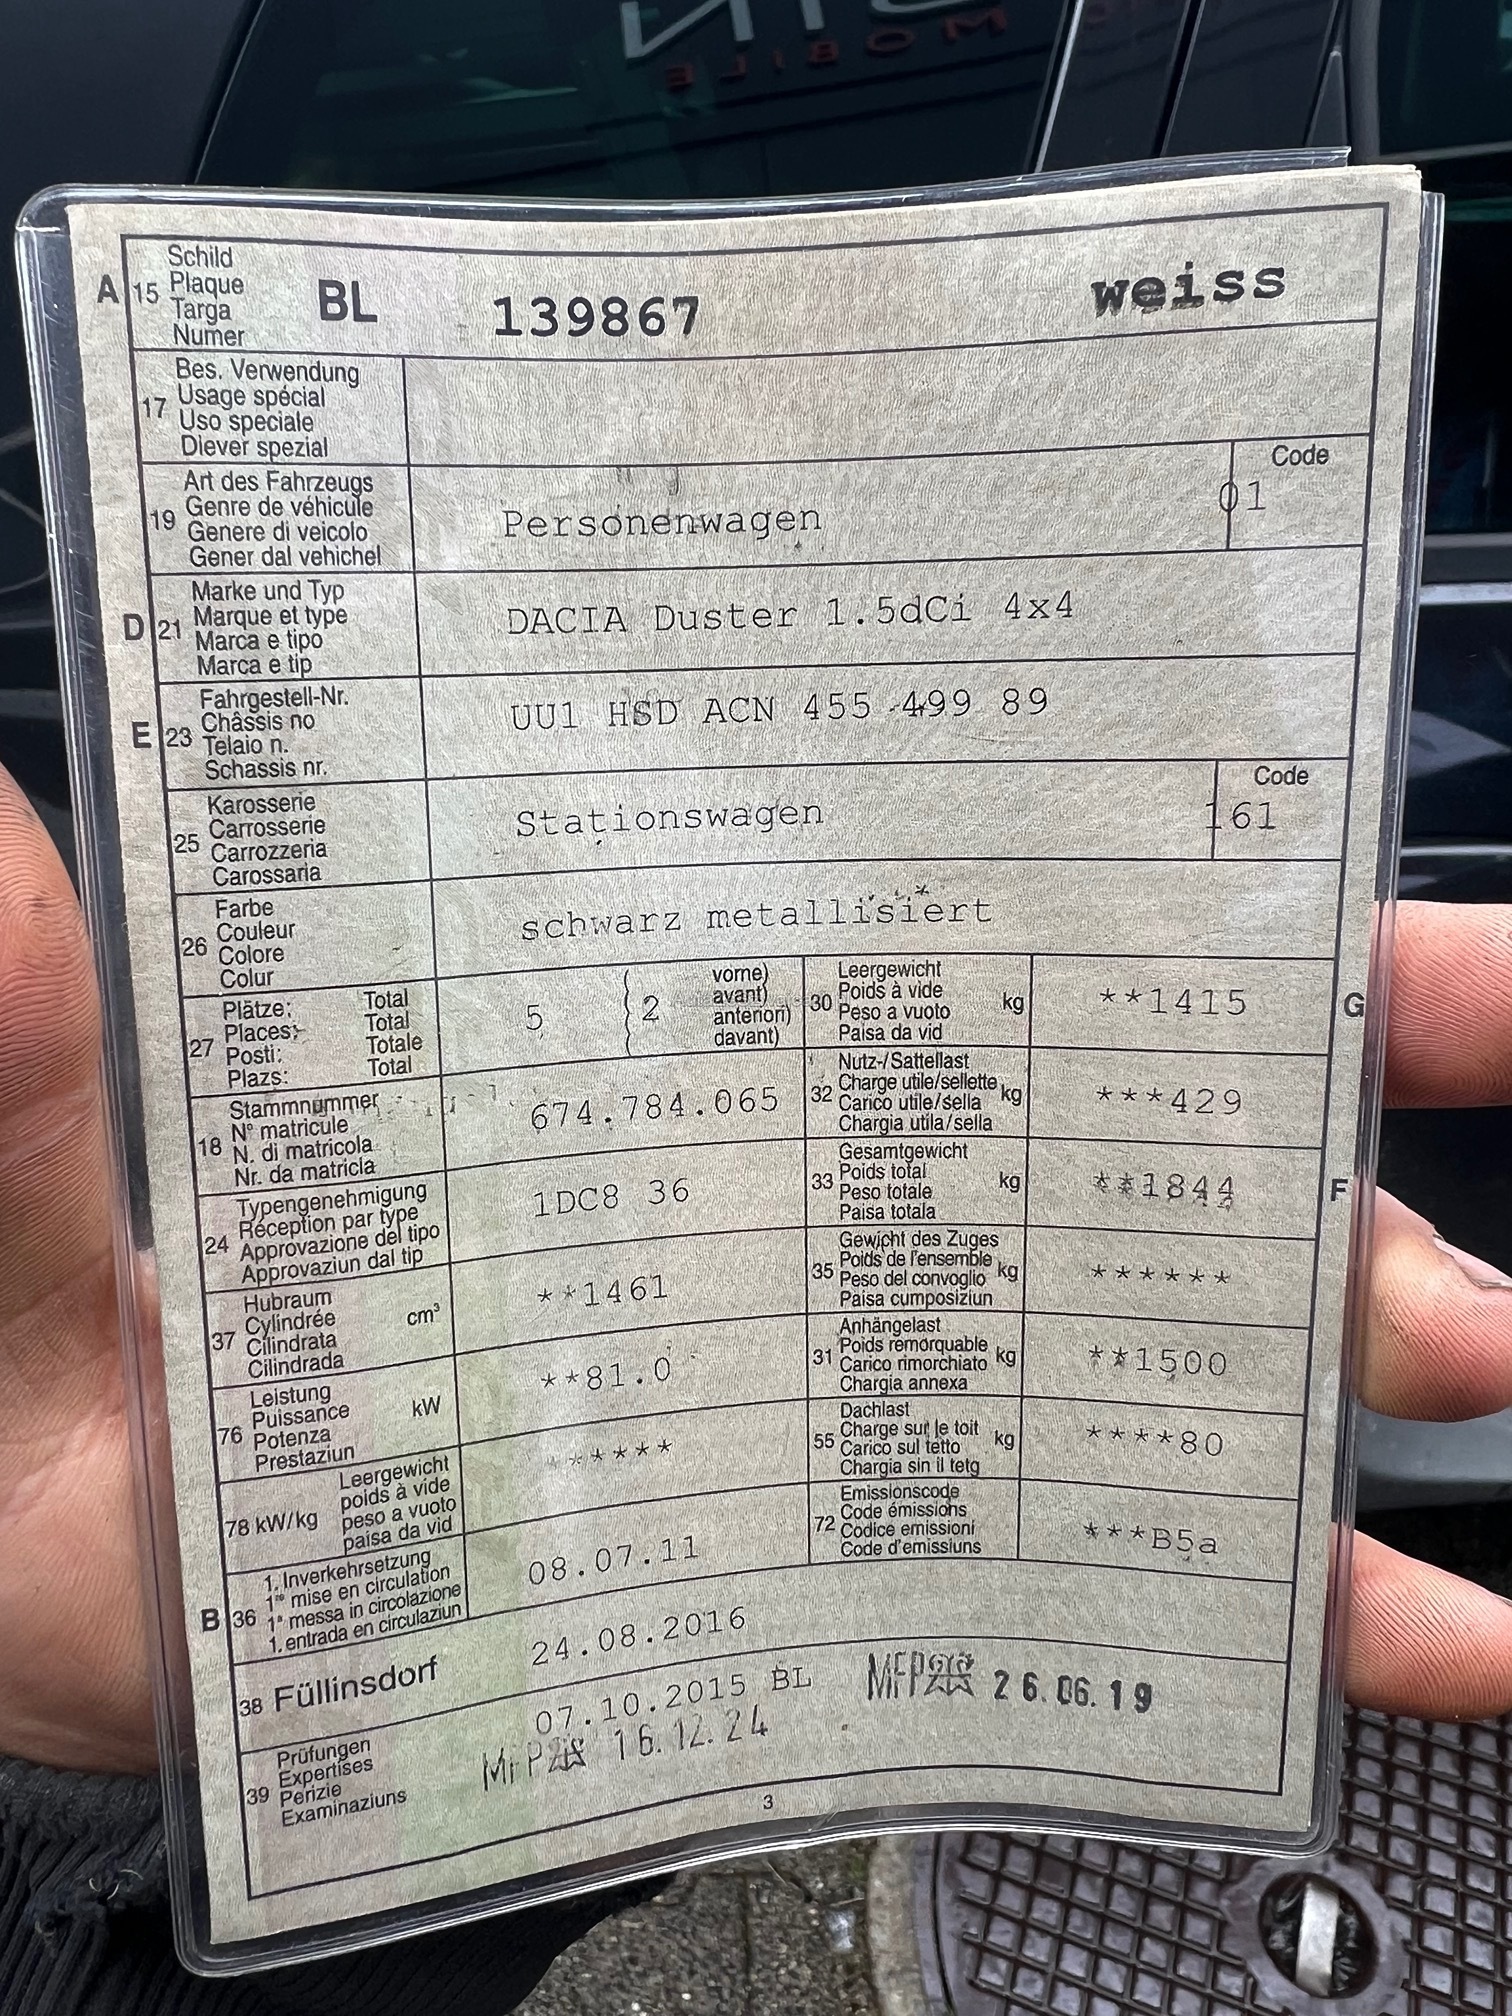 MOBILE
A 15 Schild
Plaque
Targa
Numer
BL 139867 weiss
17 Bes. Verwendung
Usage spécial
Uso speciale
Diever spezial
19 Art des Fahrzeugs
Genre de véhicule
Genere di veicolo
Gener dal vehichel
Personenwagen
Code
01
D 21 Marke und Typ
Marque et type
Marca e tipo
Marca e tip
DACIA Duster 1.5dCi 4x4
E 23 Fahrgestell-Nr.
Châssis no
Telaio n.
Schassis nr.
UU1 HSD ACN 455 499 89
25 Karosserie
Carrosserie
Carrozzeria
Carossaria
Stationswagen
Code
161
26 Farbe
Couleur
Colore
Colur
schwarz metallisiert
27 Plätze: Total
Places: Total
Posti: Totale
Plazs: Total
5 2 vorne)
avant)
anteriori)
davant)
30 Leergewicht
Poids à vide kg
Peso a vuoto
Paisa da vid
**1415 G
18 Stammnummer
N° matricule
N. di matricola
Nr. da matricla
674.784.065
32 Nutz-/Sattellast
Charge utile/sellette kg
Carico utile/sella
Chargia utila/sella
***429
24 Typengenehmigung
Réception par type
Approvazione del tipo
Approvaziun dal tip
1DC8 36
33 Gesamtgewicht
Poids total kg
Peso totale
Paisa totala
**1844 F
37 Hubraum
Cylindrée cm³
Cilindrata
Cilindrada
**1461
35 Gewicht des Zuges
Poids de l'ensemble kg
Peso del convoglio
Paisa cumposiziun
******
76 Leistung
Puissance kW
Potenza
Prestaziun
**81.0
31 Anhängelast
Poids remorquable kg
Carico rimorchiato
Chargia annexa
**1500
78 kW/kg Leergewicht
poids à vide
peso a vuoto
paisa da vid
******
55 Dachlast
Charge sur le toit kg
Carico sul tetto
Chargia sin il tetg
****80
B 36 1. Inverkehrsetzung
1re mise en circulation
1a messa in circolazione
1. entrada en circulaziun
08.07.11
72 Emissionscode
Code émissions
Codice emissioni
Code d'emissiuns
***B5a
38 Füllinsdorf 24.08.2016
39 Prüfungen
Expertises
Perizie
Examinaziuns
07.10.2015 BL
MFP 26.06.19
MFP 16.12.24
3